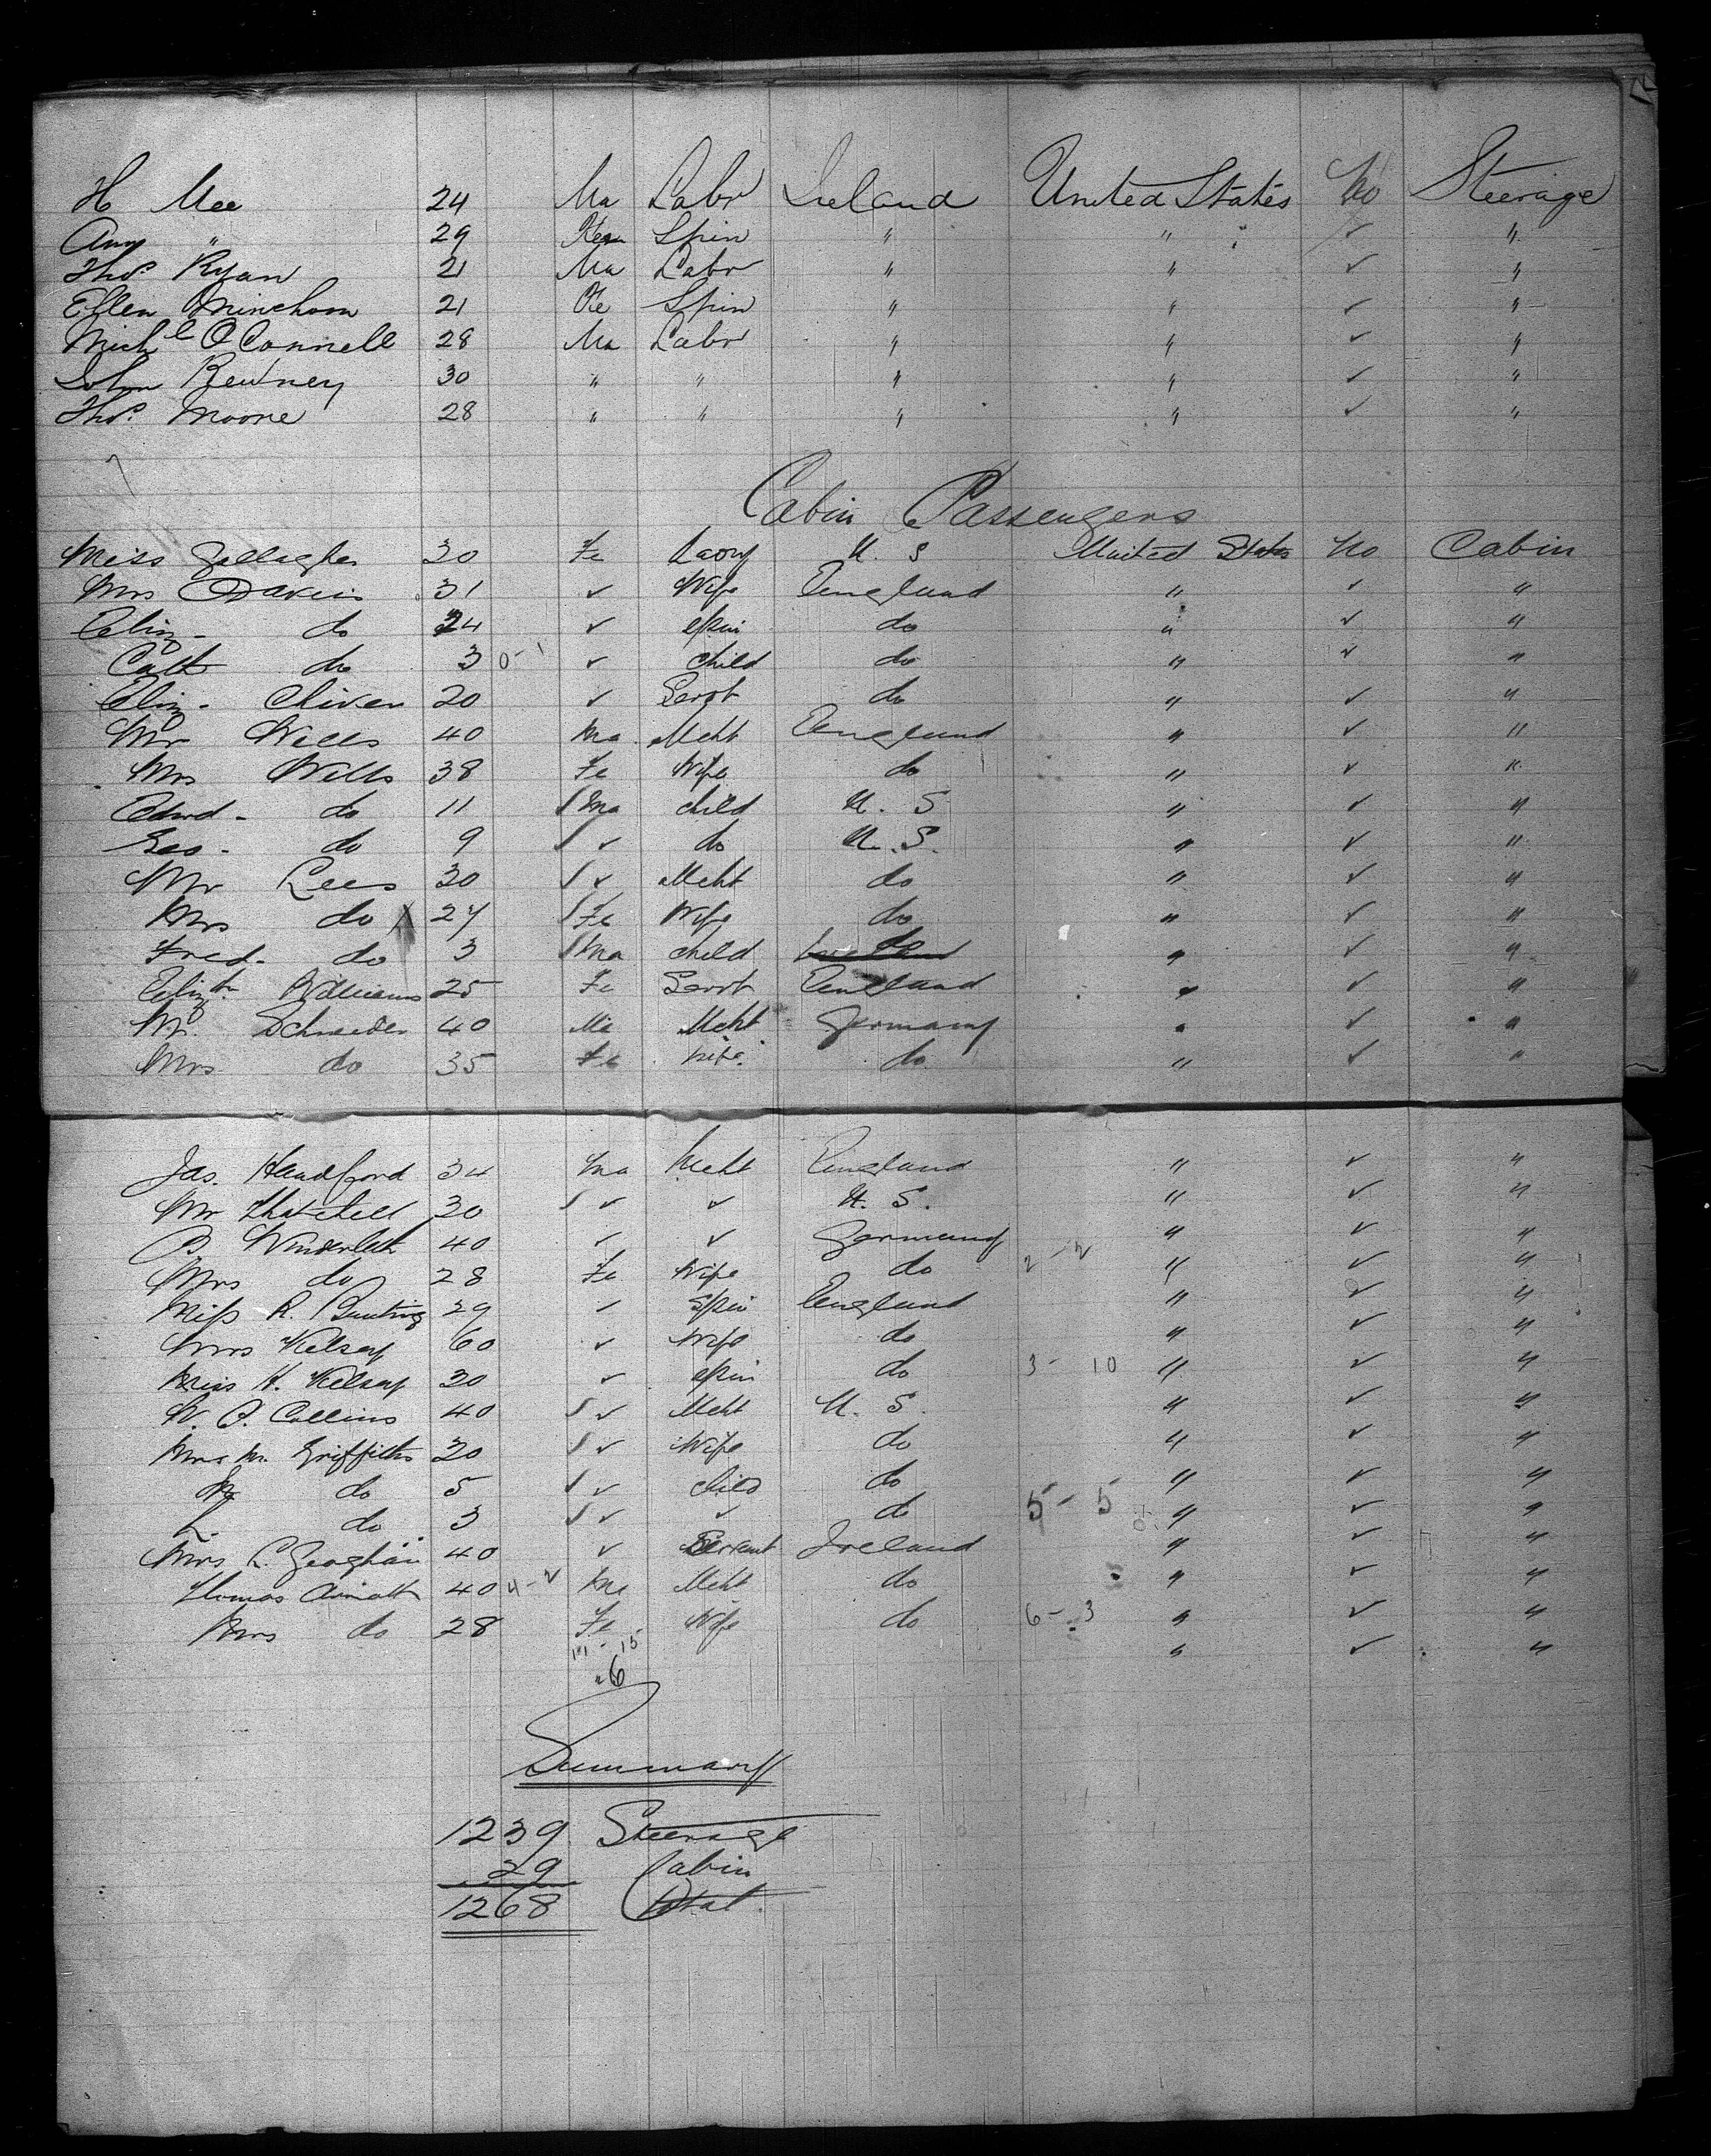 H Mee 24 Ma Labr Ireland United States No Steerage
Amy " 29 Fe Spin " " ✓ "
Thos. Ryan 21 Ma Labr " " ✓ "
Ellen 21 Fe Spin " " ✓ "
Michl O'Connell 28 Ma Labr " " ✓ "
John 30 " " " " ✓ "
Thos. Moore 28 " " " " ✓ "
Cabin Passengers
Miss Gallagher 30 Fe Lady U. S United States No Cabin
Mrs Davies 31 ✓ Wife England " ✓ "
Eliz - do 24 ✓ Spin do " ✓ "
Cath do 3 0-1 ✓ child do " ✓ "
Eliz - Chiver 20 ✓ Servt do " ✓ "
Mr Wills 40 Ma Mcht England " ✓ "
Mrs Wills 38 Fe Wife do " ✓ "
Edwd - do 11 Ma child U. S " ✓ "
Geo - do 9 ✓ do U. S. " ✓ "
Mr Lees 30 ✓ Mcht do " ✓ "
Mrs do 27 Fe Wife do " ✓ "
Fred - do 3 Ma child do " ✓ "
Elizth Williams 25 Fe Servt England " ✓ "
Mr. Schneider 40 Ma Mcht Germany " ✓ "
Mrs do 35 Fe Wife do " ✓ "
Jas. Handford 34 Ma Mcht England " ✓ "
Mr Thatchell 30 ✓ ✓ U. S. " ✓ "
B. Winderleth 40 ✓ ✓ Germany " ✓ "
Mrs do 28 Fe Wife do 2-2 " ✓ "
Miss R. Bunting 29 ✓ Spin England " ✓ "
Mrs Kelsey 60 ✓ Wife do " ✓ "
Miss H. Kelsey 30 ✓ Spin do 3- 10 " ✓ "
W. O. Collins 40 ✓ Mcht U. S. " ✓ "
Mrs M. Griffiths 30 ✓ Wife do " ✓ "
do 5 ✓ child do " ✓ "
L. do 3 ✓ ✓ do 5- 5 " ✓ "
Mrs L. Geaghan 40 ✓ Servant Ireland " ✓ "
Thomas Arnott 40 4-2 Ma Mcht do " ✓ "
Mrs do 28 Fe Wife do 6-3 " ✓ "
15 " ✓ "
6
Summary
1239 Steerage
29 Cabin
1268 Total.